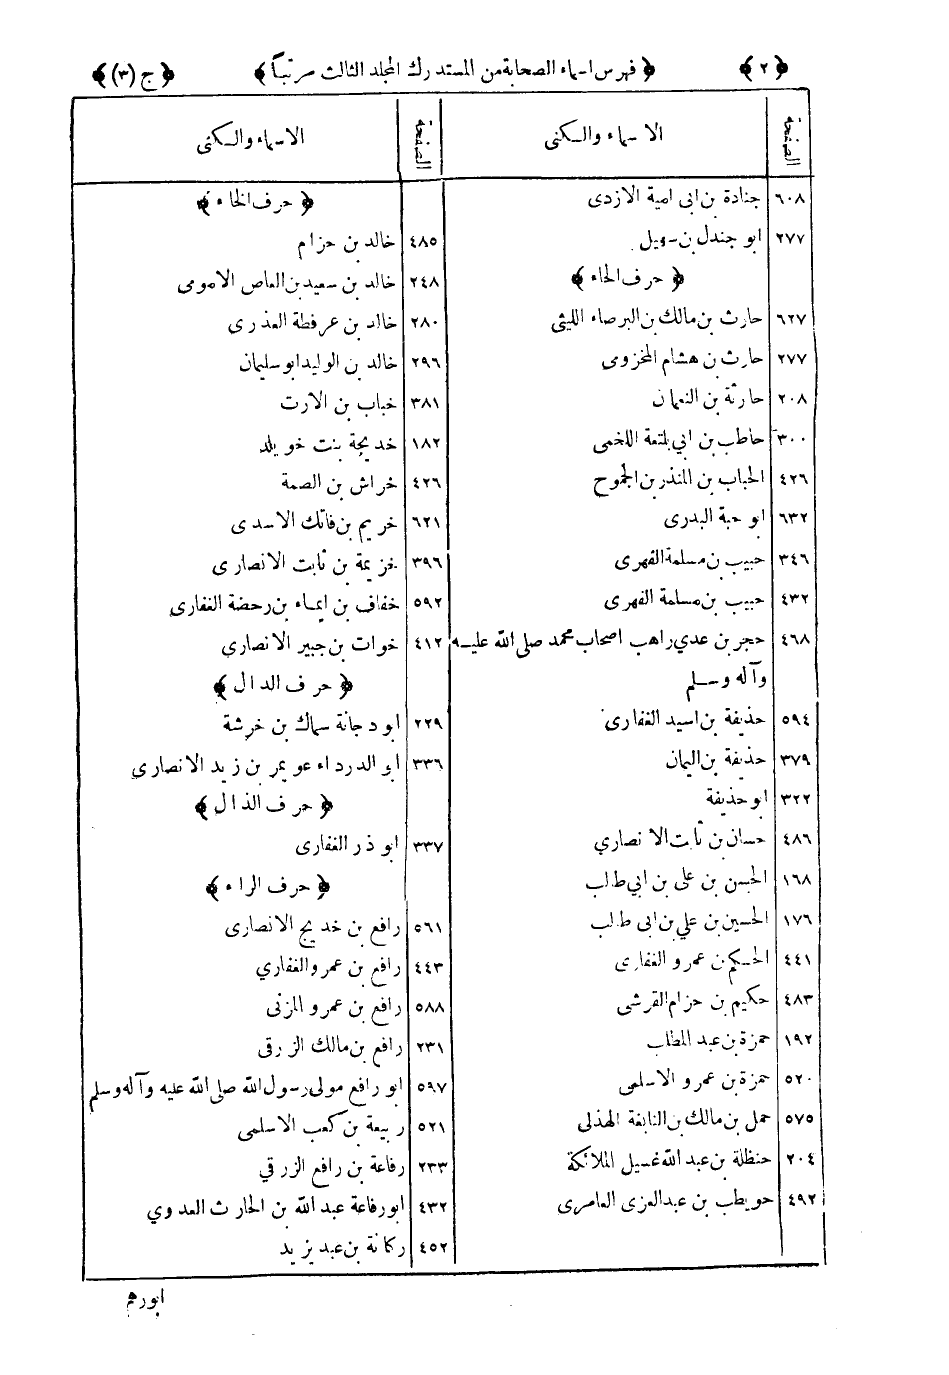 ﴿ ٢ ﴾ ﴿ فهرس اسماء الصحابة من المستدرك المجلد الثالث مرتباً ﴾ ﴿ ج (٣) ﴾
الصفحة الاسماء والكنى
٦٠٨ جنادة بن ابى امية الازدى
٢٧٧ ابو جندل بن سهيل
﴿ حرف الحاء ﴾
٦٢٧ حارث بن مالك بن البرصاء الليثى
٢٧٧ حارث بن هشام المخزومى
٢٠٨ حارثة بن النعمان
٣٠٠ حاطب بن ابي بلتعة اللخمى
٤٢٦ الحباب بن المنذر بن الجموح
٦٣٢ ابو حبة البدرى
٣٤٦ حبيب بن مسلمة الفهرى
٤٣٢ حبيب بن مسلمة الفهرى
٤٦٨ حجر بن عدي راهب اصحاب محمد صلى الله عليه
وآله وسلم
٥٩٤ حذيفة بن اسيد الغفارى
٣٧٩ حذيفة بن اليمان
٣٢٢ ابو حذيفة
٤٨٦ حسان بن ثابت الانصاري
١٦٨ الحسن بن على بن ابي طالب
١٧٦ الحسين بن علي بن ابى طالب
٤٤١ الحكم بن عمرو الغفارى
٤٨٣ حكيم بن حزام القرشى
١٩٢ حمزة بن عبد المطلب
٥٢٠ حمزة بن عمرو الاسلمى
٥٧٥ حمل بن مالك بن النابغة الهذلى
٢٠٤ حنظلة بن عبد الله غسيل الملائكة
٤٩٢ حويطب بن عبدالعزى العامرى
الصفحة الاسماء والكنى
﴿ حرف الخاء ﴾
٤٨٥ خالد بن حزام
٢٤٨ خالد بن سعيد بن العاص الاموى
٢٨٠ خالد بن عرفطة العذرى
٢٩٦ خالد بن الوليد ابو سليمان
٣٨١ خباب بن الارت
١٨٢ خديجة بنت خويلد
٤٢٦ خراش بن الصمة
٦٢١ خريم بن فاتك الاسدى
٣٩٦ خزيمة بن ثابت الانصارى
٥٩٢ خفاف بن ايماء بن رحضة الغفارى
٤١٢ خوات بن جبير الانصارى
﴿ حرف الدال ﴾
٢٢٩ ابو دجانة سماك بن خرشة
٣٣٦ ابو الدرداء عويمر بن زيد الانصارى
﴿ حرف الذال ﴾
٣٣٧ ابو ذر الغفارى
﴿ حرف الراء ﴾
٥٦١ رافع بن خديج الانصارى
٤٤٣ رافع بن عمرو الغفاري
٥٨٨ رافع بن عمرو المزنى
٢٣١ رافع بن مالك الزرقى
٥٩٧ ابو رافع مولى رسول الله صلى الله عليه وآله وسلم
٥٢١ ربيعة بن كعب الاسلمى
٢٣٣ رفاعة بن رافع الزرقي
٤٣٢ ابورفاعة عبد الله بن الحارث العدوي
٤٥٢ ركانة بن عبد يزيد
ابورهم